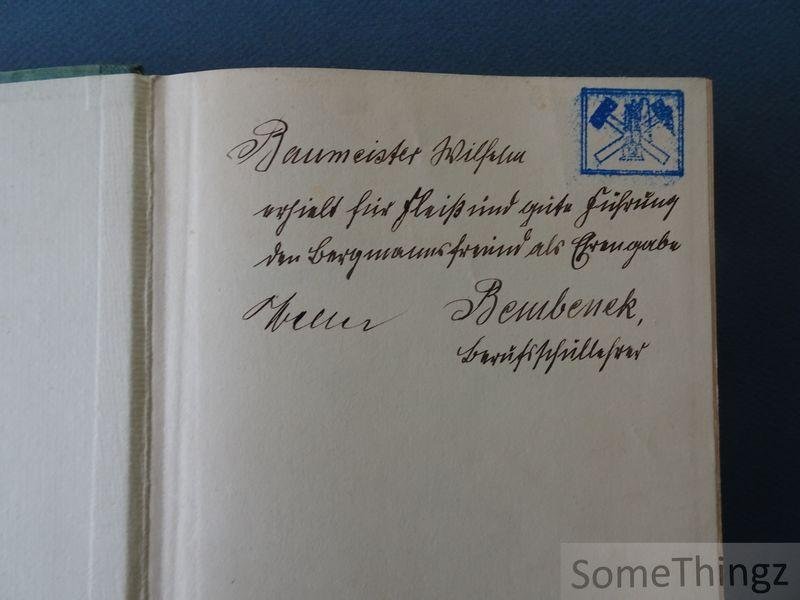 Baumeister Wilhelm
erhielt für Fleiß und gute Führung
den Bergmannsfreund als Erengabe
Weller Bembenek,
Berufsschullehrer
SomeThingz